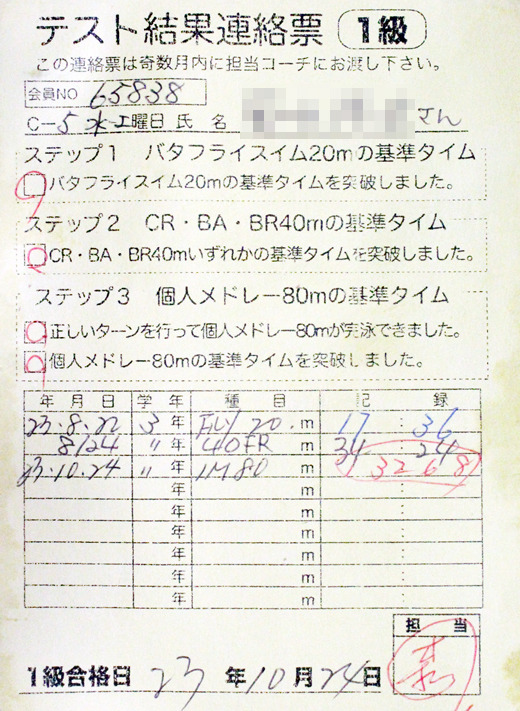 テスト結果連絡票 1級
この連絡票は奇数月内に担当コーチにお渡し下さい。
会員NO 65838
C-5 水土曜日 氏名 さん
ステップ1 バタフライスイム20mの基準タイム
バタフライスイム20mの基準タイムを突破しました。
ステップ2 CR・BA・BR40mの基準タイム
CR・BA・BR40mいずれかの基準タイムを突破しました。
ステップ3 個人メドレー80mの基準タイム
正しいターンを行って個人メドレー80mが完泳できました。
個人メドレー80mの基準タイムを突破しました。
年月日 学年 種目 記録
23.8.22 3年 FLY 20.m 17:36
8/24 〃年 40FR m 34:24
23.10.24 〃年 IM80 m 1 32 68
年 m :
年 m :
年 m :
年 m :
年 m :
年 m :
担当
1級合格日 23年10月24日